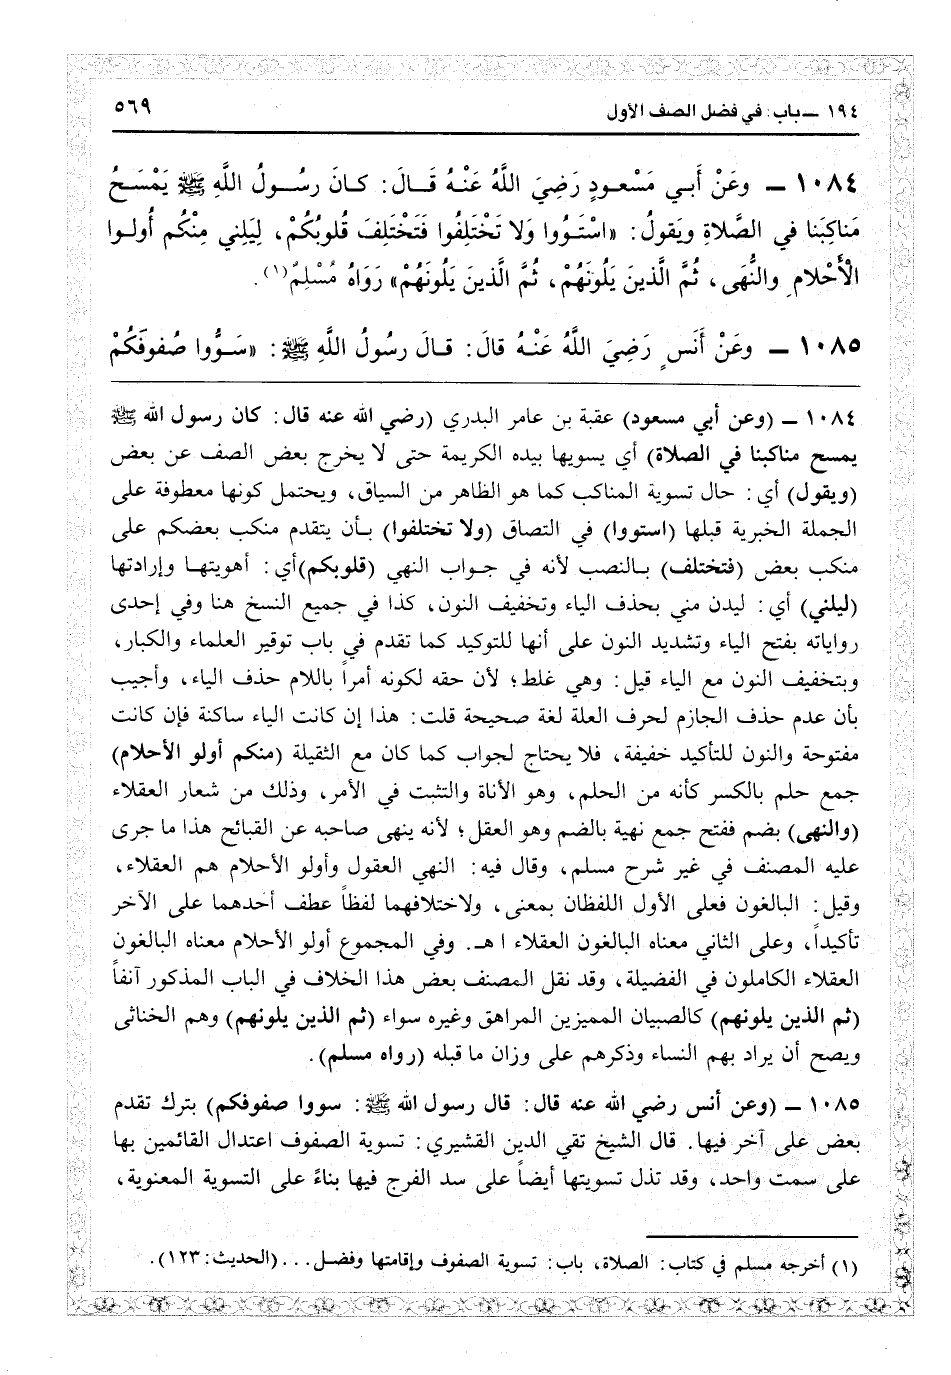 ١٩٤ ــ باب: في فضل الصف الأول
٥٦٩
١٠٨٤ ــ وعَنْ أَبي مَسْعودٍ رَضِيَ اللَّهُ عَنْهُ قَالَ: كانَ رسُولُ اللَّهِ ﷺ يَمْسَحُ
مَناكِبَنا في الصَّلاةِ ويَقولُ: «اسْتَوُوا وَلا تَخْتَلِفُوا فَتَخْتَلِفَ قُلوبُكُمْ، لِيَلِني مِنْكُم أُولوا
الْأَحْلامِ والنُّهَى، ثُمَّ الَّذينَ يَلُونَهُمْ، ثُمَّ الَّذينَ يَلونَهُمْ» رَوَاهُ مُسْلِمٌ(١).
١٠٨٥ ــ وعَنْ أَنَسٍ رَضِيَ اللَّهُ عَنْهُ قالَ: قالَ رسُولُ اللَّهِ ﷺ: «سَوُّوا صُفوفَكُمْ
١٠٨٤ ــ (وعن أبي مسعود) عقبة بن عامر البدري (رضي الله عنه قال: كان رسول الله ﷺ
يمسح مناكبنا في الصلاة) أي يسويها بيده الكريمة حتى لا يخرج بعض الصف عن بعض
(ويقول) أي: حال تسوية المناكب كما هو الظاهر من السياق، ويحتمل كونها معطوفة على
الجملة الخبرية قبلها (استووا) في التصاق (ولا تختلفوا) بأن يتقدم منكب بعضكم على
منكب بعض (فتختلف) بالنصب لأنه في جواب النهي (قلوبكم)أي: أهويتها وإرادتها
(ليلني) أي: ليدن مني بحذف الياء وتخفيف النون، كذا في جميع النسخ هنا وفي إحدى
رواياته بفتح الياء وتشديد النون على أنها للتوكيد كما تقدم في باب توقير العلماء والكبار،
وبتخفيف النون مع الياء قيل: وهي غلط؛ لأن حقه لكونه أمراً باللام حذف الياء، وأجيب
بأن عدم حذف الجازم لحرف العلة لغة صحيحة قلت: هذا إن كانت الياء ساكنة فإن كانت
مفتوحة والنون للتأكيد خفيفة، فلا يحتاج لجواب كما كان مع الثقيلة (منكم أولو الأحلام)
جمع حلم بالكسر كأنه من الحلم، وهو الأناة والتثبت في الأمر، وذلك من شعار العقلاء
(والنهى) بضم ففتح جمع نهية بالضم وهو العقل؛ لأنه ينهى صاحبه عن القبائح هذا ما جرى
عليه المصنف في غير شرح مسلم، وقال فيه: النهي العقول وأولو الأحلام هم العقلاء،
وقيل: البالغون فعلى الأول اللفظان بمعنى، ولاختلافهما لفظاً عطف أحدهما على الآخر
تأكيداً، وعلى الثاني معناه البالغون العقلاء اهـ. وفي المجموع أولو الأحلام معناه البالغون
العقلاء الكاملون في الفضيلة، وقد نقل المصنف بعض هذا الخلاف في الباب المذكور آنفاً
(ثم الذين يلونهم) كالصبيان المميزين المراهق وغيره سواء (ثم الذين يلونهم) وهم الخناثى
ويصح أن يراد بهم النساء وذكرهم على وزان ما قبله (رواه مسلم).
١٠٨٥ ــ (وعن أنس رضي الله عنه قال: قال رسول الله ﷺ: سووا صفوفكم) بترك تقدم
بعض على آخر فيها. قال الشيخ تقي الدين القشيري: تسوية الصفوف اعتدال القائمين بها
على سمت واحد، وقد تذل تسويتها أيضاً على سد الفرج فيها بناءً على التسوية المعنوية،
(١) أخرجه مسلم في كتاب: الصلاة، باب: تسوية الصفوف وإقامتها وفضل... (الحديث: ١٢٣).